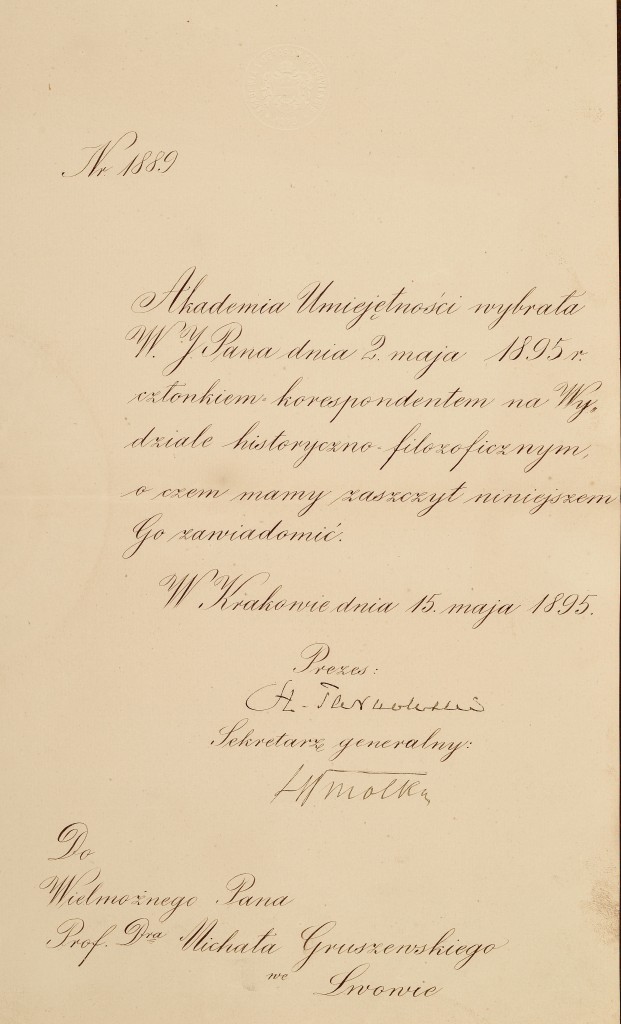 Nr 1889
Akademia Umiejętności wybrała
W. J Pana dnia 2. maja 1895 r.
członkiem-korespondentem na Wy-
dziale historyczno-filozoficznym,
o czem mamy zaszczyt niniejszem
Go zawiadomić.
W Krakowie dnia 15. maja 1895.
Prezes:
St. Tarnowski
Sekretarz generalny:
Smolka
Do
Wielmożnego Pana
Prof. Dra Michała Gruszewskiego
we Lwowie